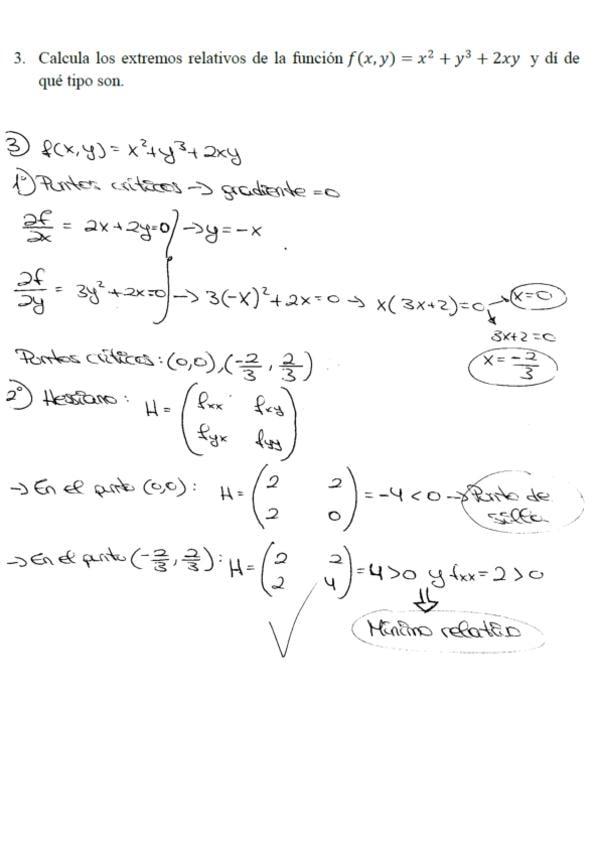 3. Calcula los extremos relativos de la función f(x, y) = x² + y³ + 2xy y dí de
qué tipo son.
3) f(x,y) = x²+y³+2xy
1°) Puntos críticos → gradiente = 0
∂f/∂x = 2x+2y=0 → y = -x
∂f/∂y = 3y²+2x=0 → 3(-x)²+2x=0 → x(3x+2)=0 → x=0
3x+2=0
x = -2/3
Puntos críticos: (0,0), (-2/3, 2/3)
2°) Hessiano: H = (fxx fxy
fyx fyy)
→ En el punto (0,0): H = (2 2
2 0) = -4 < 0 → Punto de
silla
→ En el punto (-2/3, 2/3): H = (2 2
2 4) = 4>0 y fxx = 2>0
⇓
Mínimo relativo